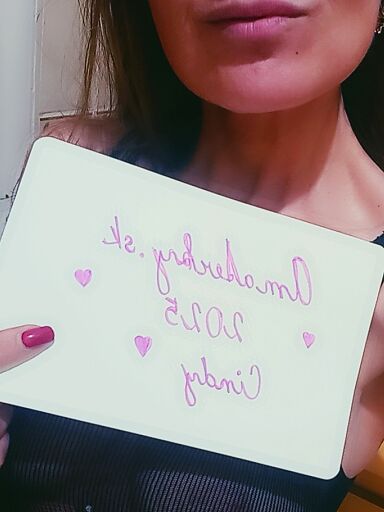 Amaterky.sk
2025
Cindy